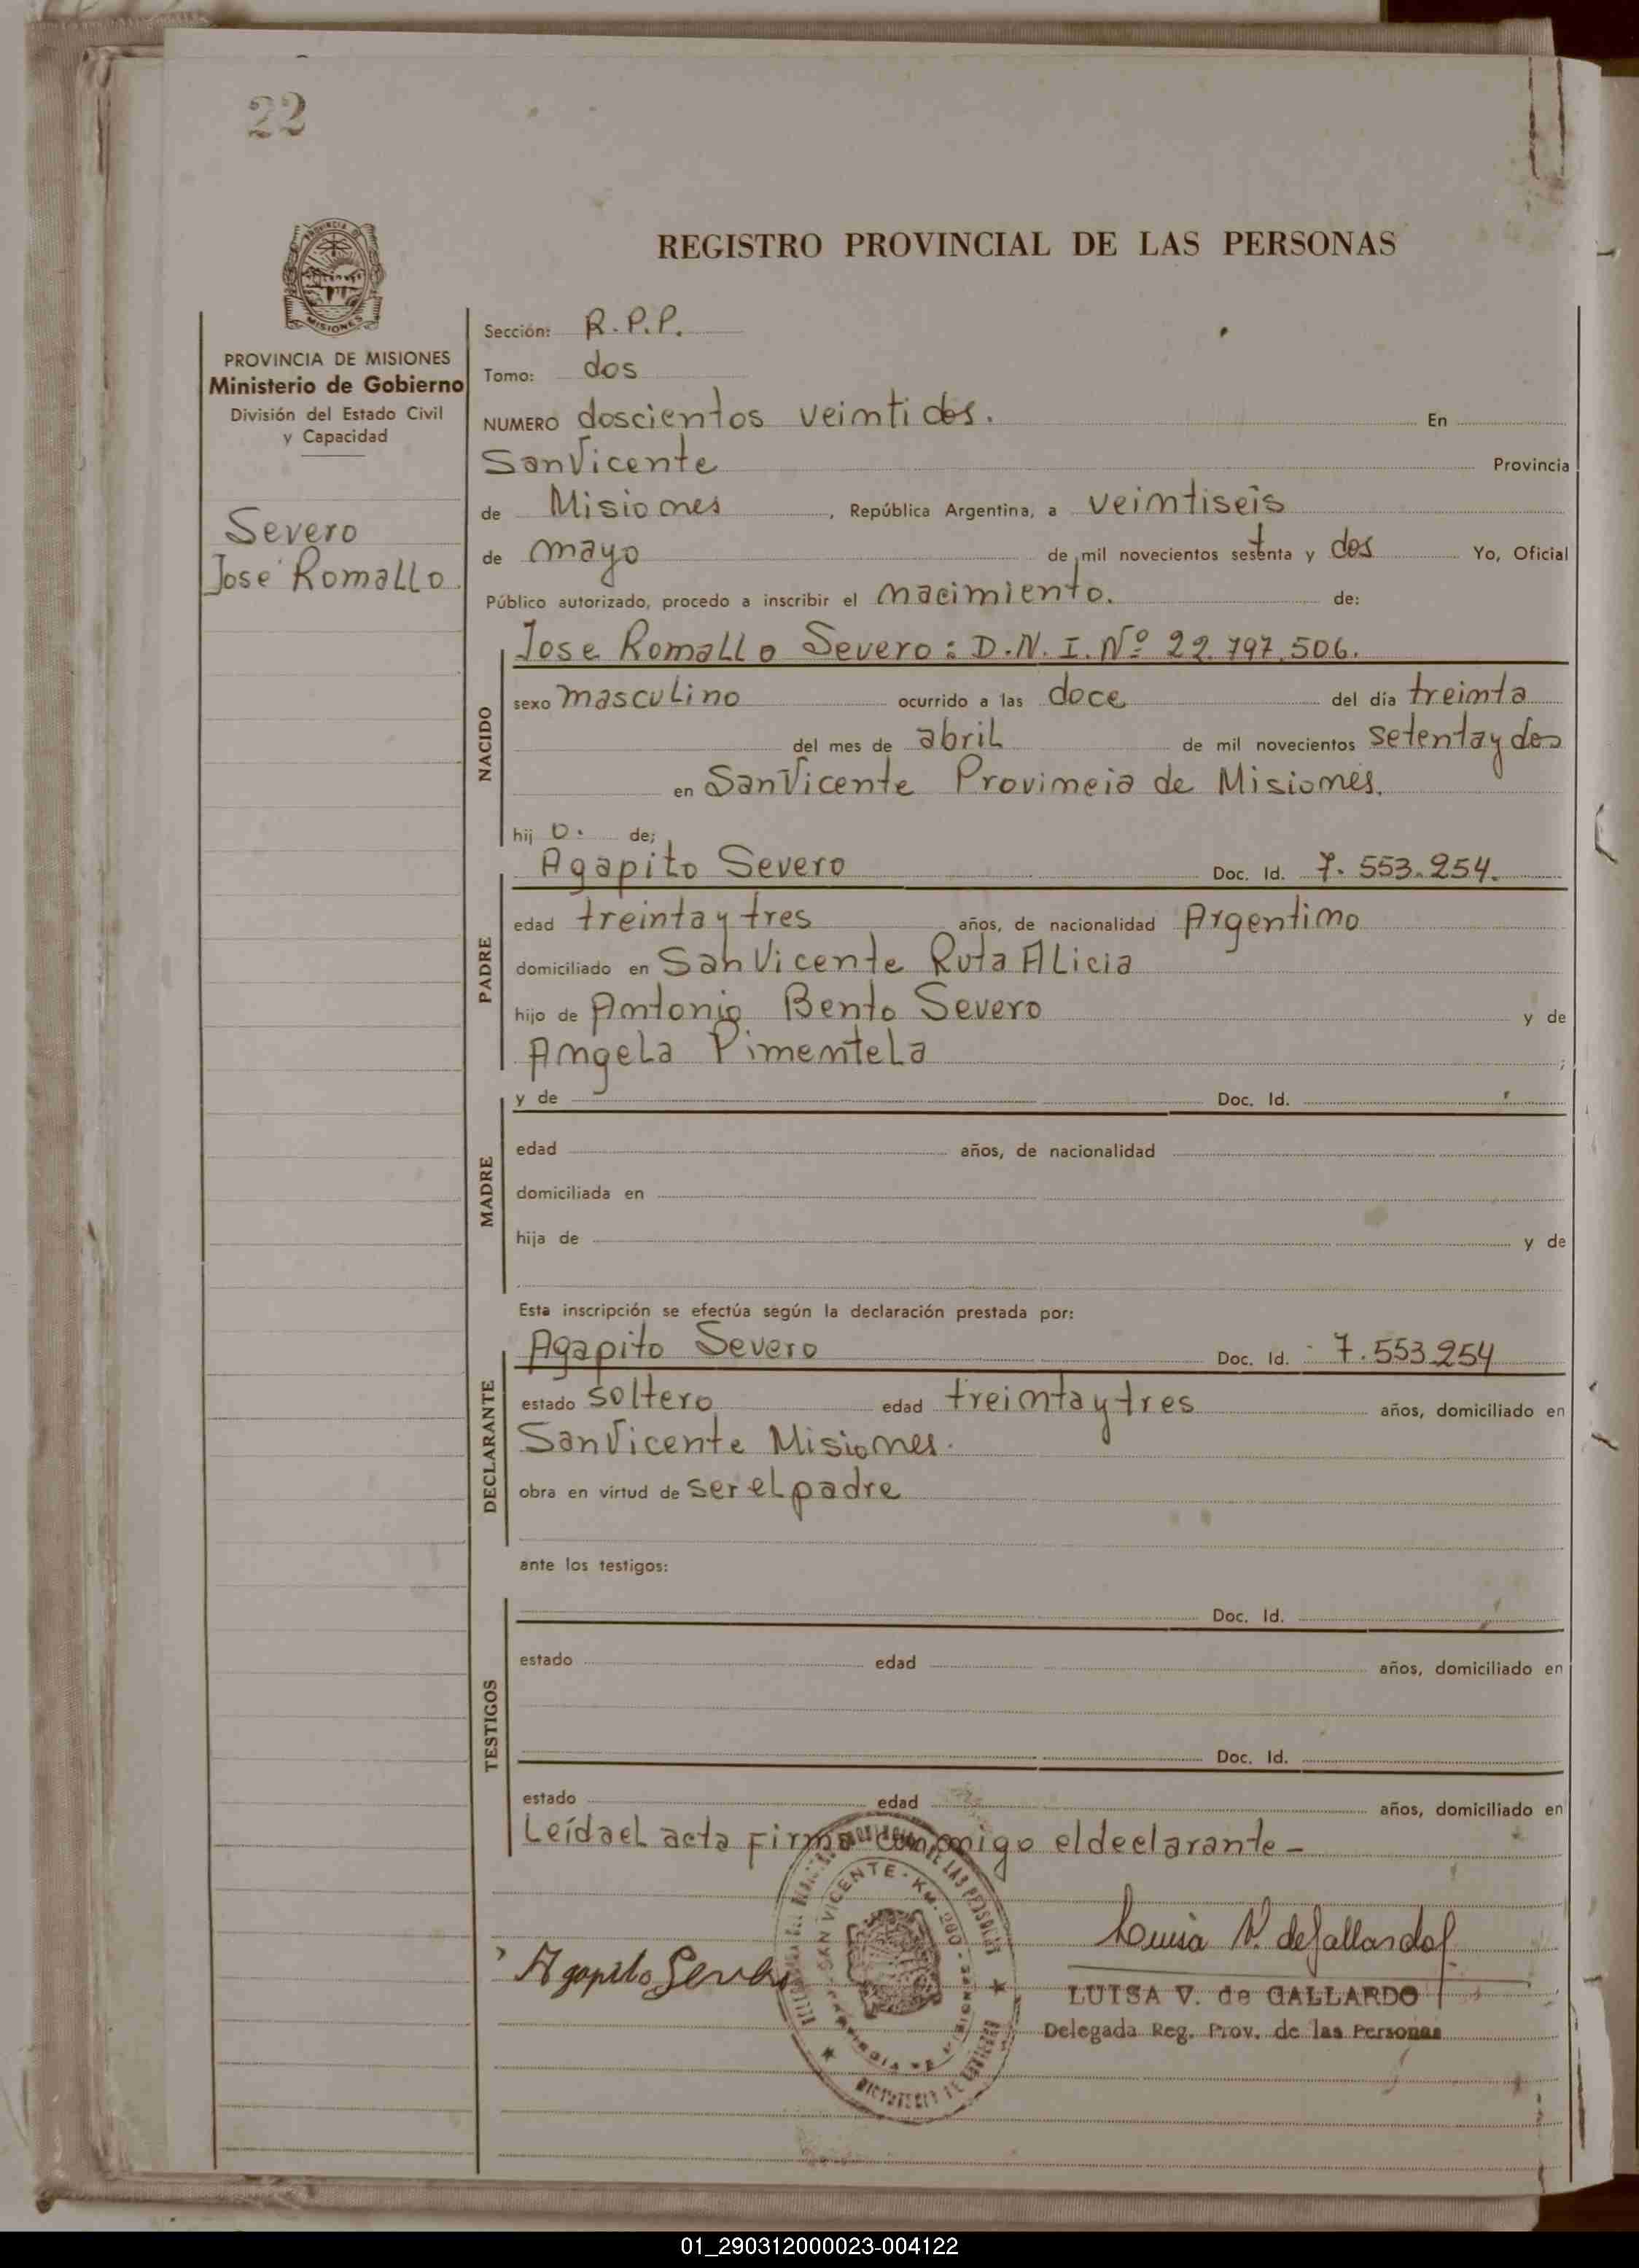 22
REGISTRO PROVINCIAL DE LAS PERSONAS
MISIONES
PROVINCIA DE MISIONES
Ministerio de Gobierno
División del Estado Civil
y Capacidad
Severo
Jose Romallo
Sección: R.P.P.
Tomo: dos
NUMERO doscientos veintidos. En
San Vicente Provincia
de Misiones, República Argentina, a veintiseis
de mayo de mil novecientos setenta y dos Yo, Oficial
Público autorizado, procedo a inscribir el nacimiento. de:
NACIDO
Jose Romallo Severo: D.N.I. Nº 22.797.506.
sexo masculino ocurrido a las doce del día treinta
del mes de abril de mil novecientos setenta y dos
en San Vicente Provincia de Misiones.
hij o. de;
PADRE
Agapito Severo Doc. Id. 7.553.254.
edad treinta y tres años, de nacionalidad Argentino
domiciliado en San Vicente Ruta Alicia
hijo de Antonio Bento Severo y de
Angela Pimentela ;
MADRE
y de Doc. Id.
edad años, de nacionalidad
domiciliada en
hija de y de
Esta inscripción se efectúa según la declaración prestada por:
DECLARANTE
Agapito Severo Doc. Id. 7.553.254
estado soltero edad treinta y tres años, domiciliado en
San Vicente Misiones.
obra en virtud de ser el padre
ante los testigos:
TESTIGOS
Doc. Id.
estado edad años, domiciliado en
Doc. Id.
estado edad años, domiciliado en
Leída el acta firma conmigo el declarante-
SAN VICENTE - KM.
Agapito Severo
Luisa V. de Gallardo
LUISA V. de GALLARDO
Delegada Reg. Prov. de las Personas
01_290312000023-004122